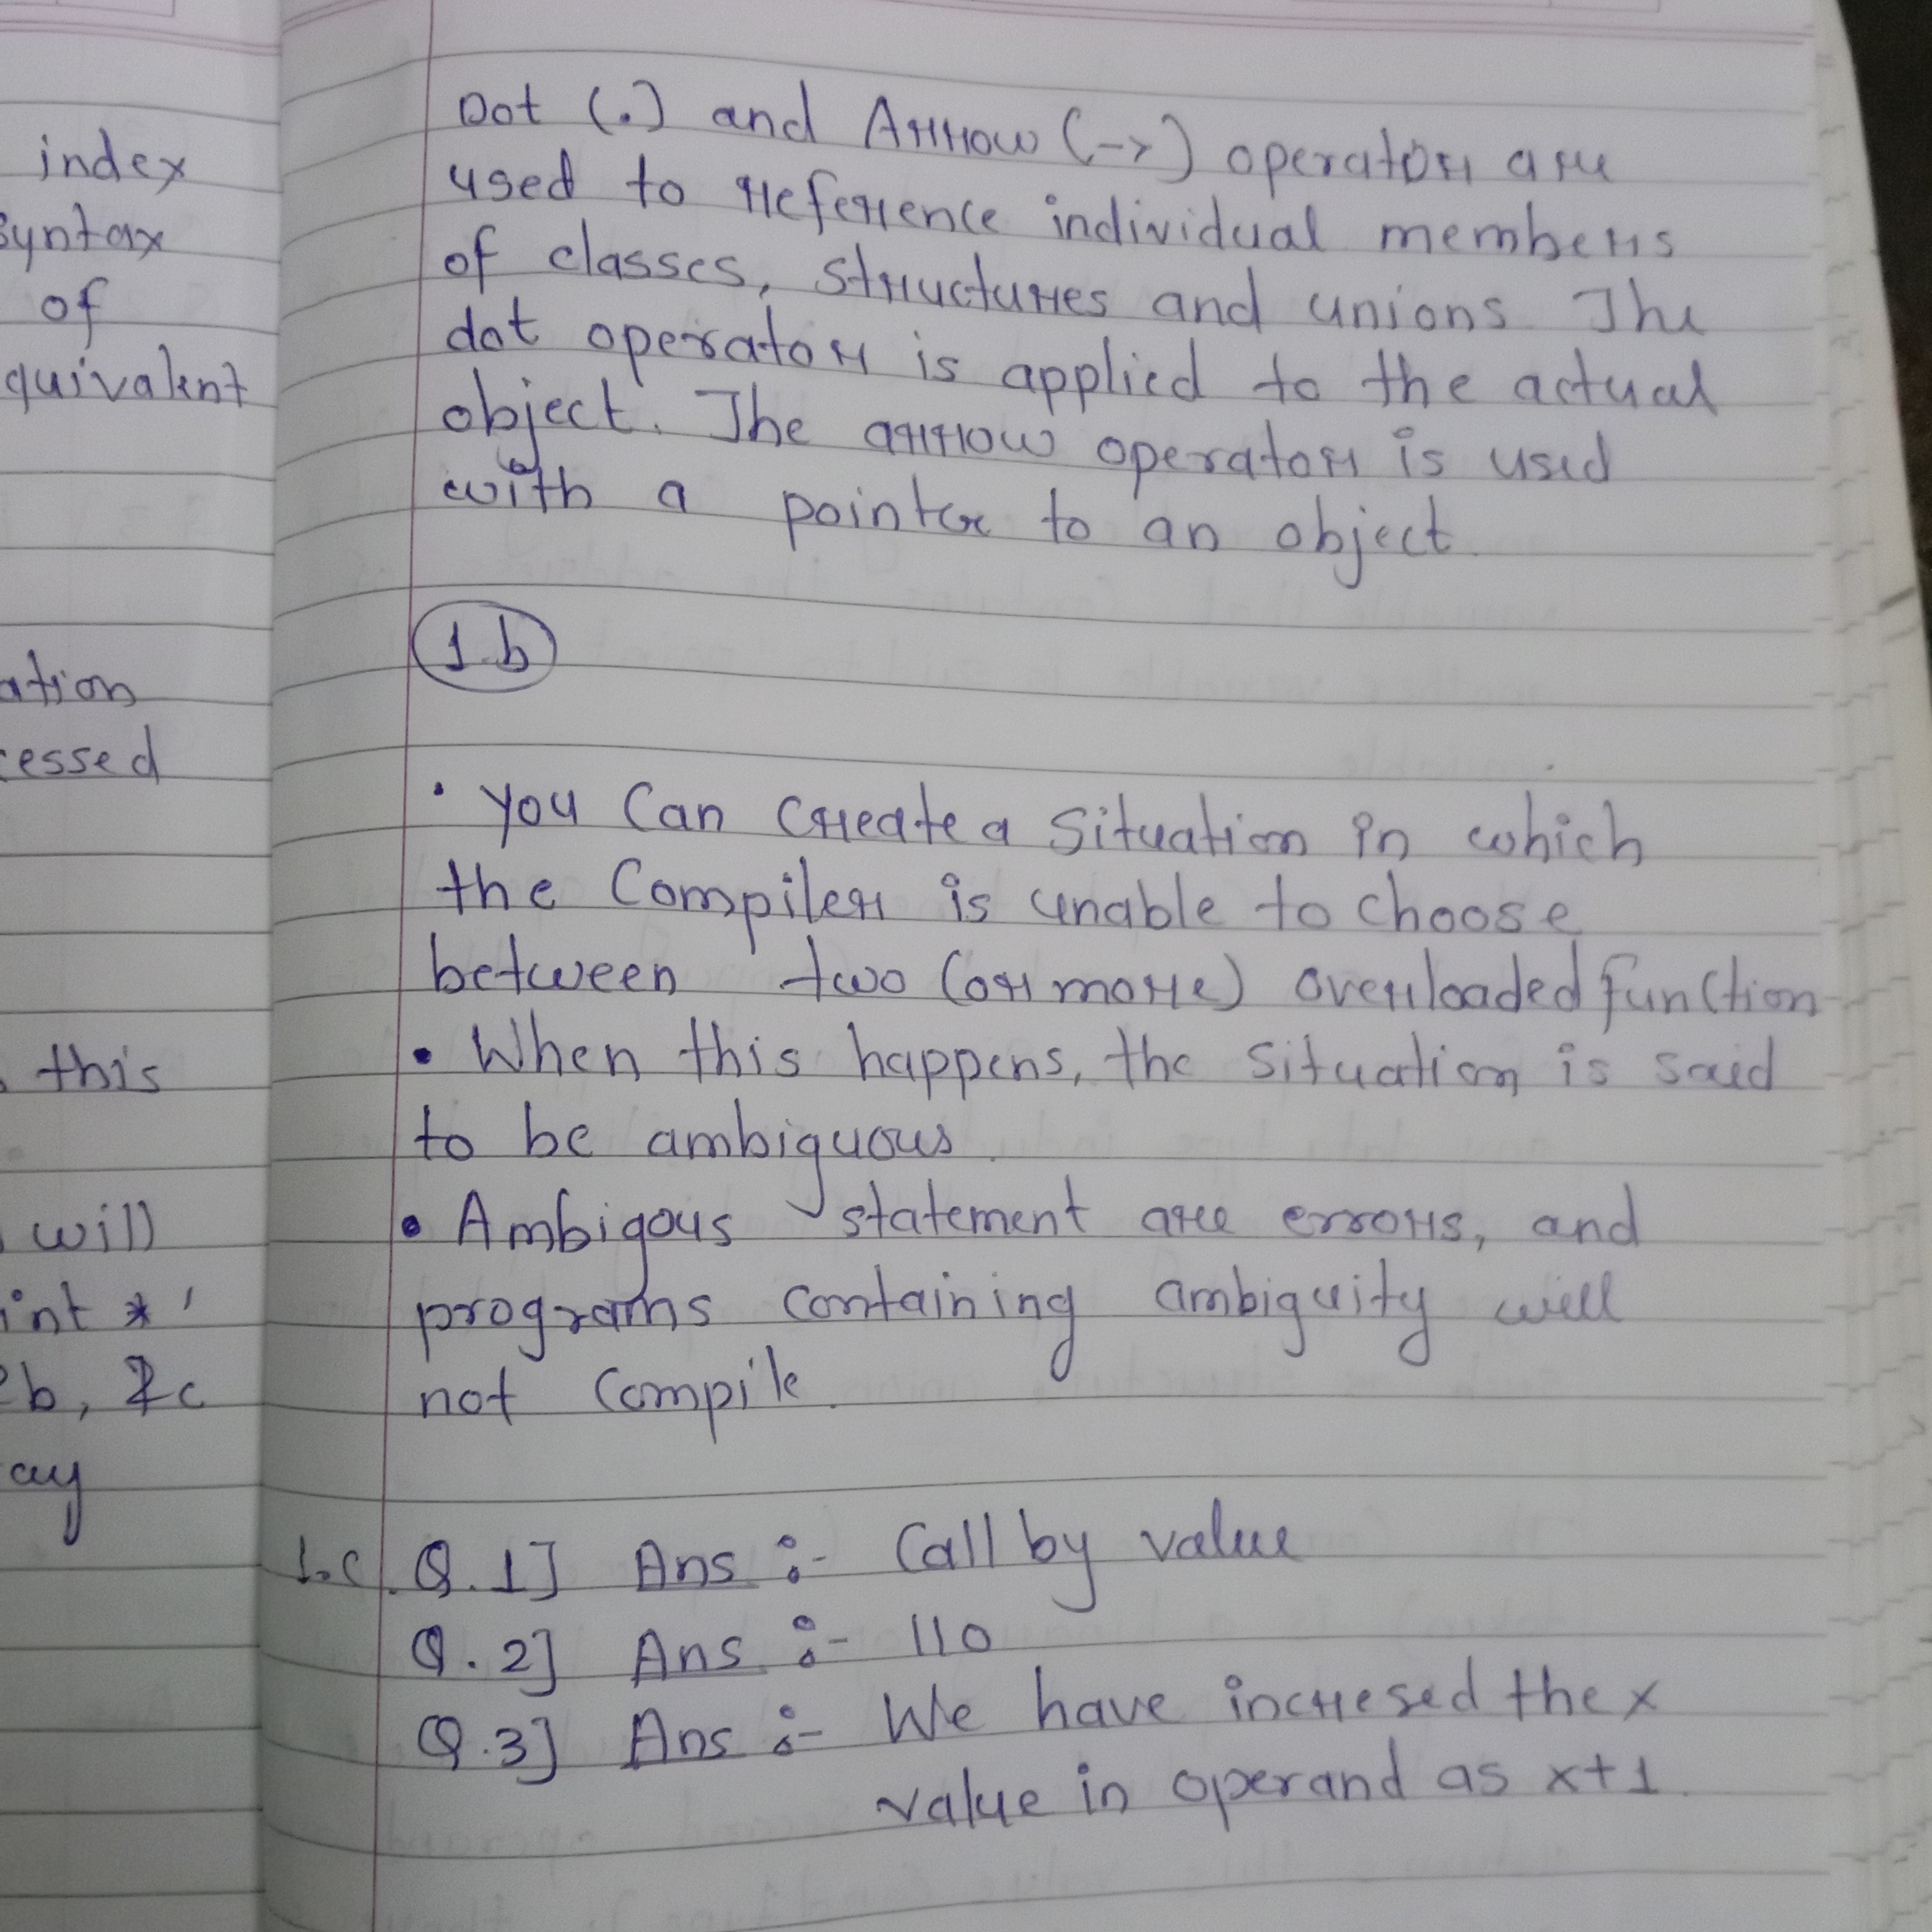 index
syntax
of
quivalent
ation
cessed
this
will
int *
b, &c
ay
Dot (.) and Arrow (->) operator are
used to reference individual members
of classes, structures and unions. The
dot operator is applied to the actual
object. The arrow operator is used
with a pointer to an object.
1.b
• You Can Create a Situation in which
the Compiler is unable to choose
between two (or more) overloaded function
• When this happens, the situation is said
to be ambiguous.
• Ambigous statement are errors, and
programs containing ambiguity will
not compile.
1.c. Q.1] Ans :- Call by value
Q.2] Ans :- 110
Q.3] Ans :- We have incresed the x
value in operand as x+1.